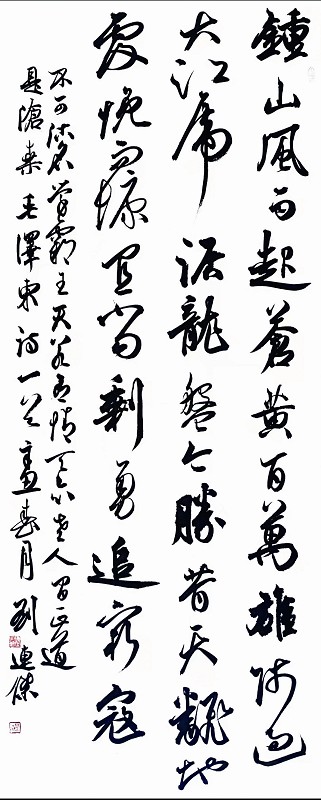 鍾山風雨起蒼黃百萬雄師過
大江虎踞龍盤今勝昔天飜地
覆慨而慷宜將剩勇追窮寇
不可沽名學霸王天若有情天亦老人間正道
是滄桒毛澤東詩一首孟春月劉連傑